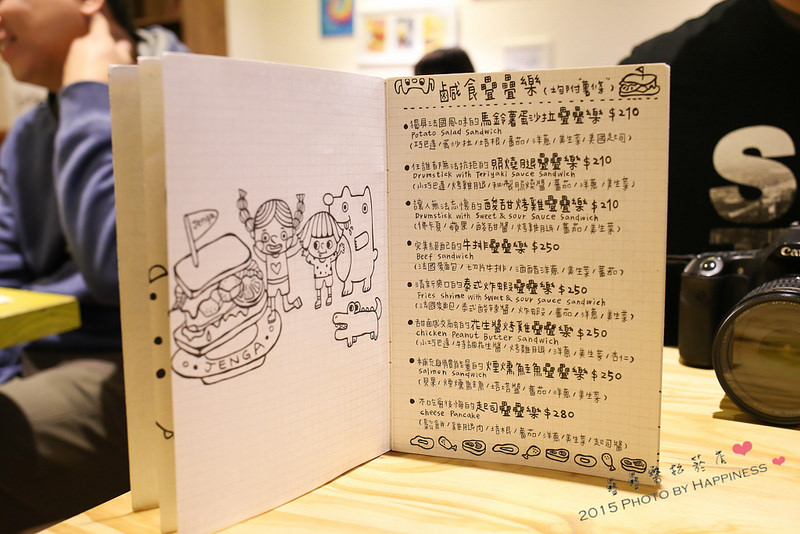 JENGA
JENGA
鹹食疊疊樂(均附薯條)
獨具法國風味的馬鈴薯蛋沙拉疊疊樂 $210
Potato Salad Sandwich
(巧巴達/蛋沙拉/培根/番茄/洋蔥/美生菜/美國起司)
任誰都無法抗拒的照燒腿疊疊樂 $210
Drumstick with Teriyaki Sauce Sandwich
讓人無法忘懷的酸甜烤雞疊疊樂 $210
Drumstick with Sweet & Sour Sauce Sandwich
(佛卡夏/蘋果/酸甜醬/烤雞腿/番茄/美生菜)
牛排疊疊樂 $250
Beef Sandwich
(法國麵包/七分牛排/洋蔥/美生菜/番茄)
清新爽口的泰式炸蝦疊疊樂 $250
Fries shrime with Sweet & sour sauce sandwich
(法國麵包/泰式酸辣醬/炸蝦/番茄/洋蔥/美生菜)
花生醬烤雞疊疊樂 $250
chicken Peanut Butter Sandwich
煙燻鮭魚疊疊樂 $250
Salmon Sandwich
(貝果/煙燻鮭魚/塔塔醬/番茄/洋蔥/美生菜)
不吃會後悔的起司疊疊樂 $280
cheese Pancake
(鬆餅/雞腿肉/培根/番茄/洋蔥/美生菜/起司醬)
S
Canon
2015 PHOTO BY HAPPINESS